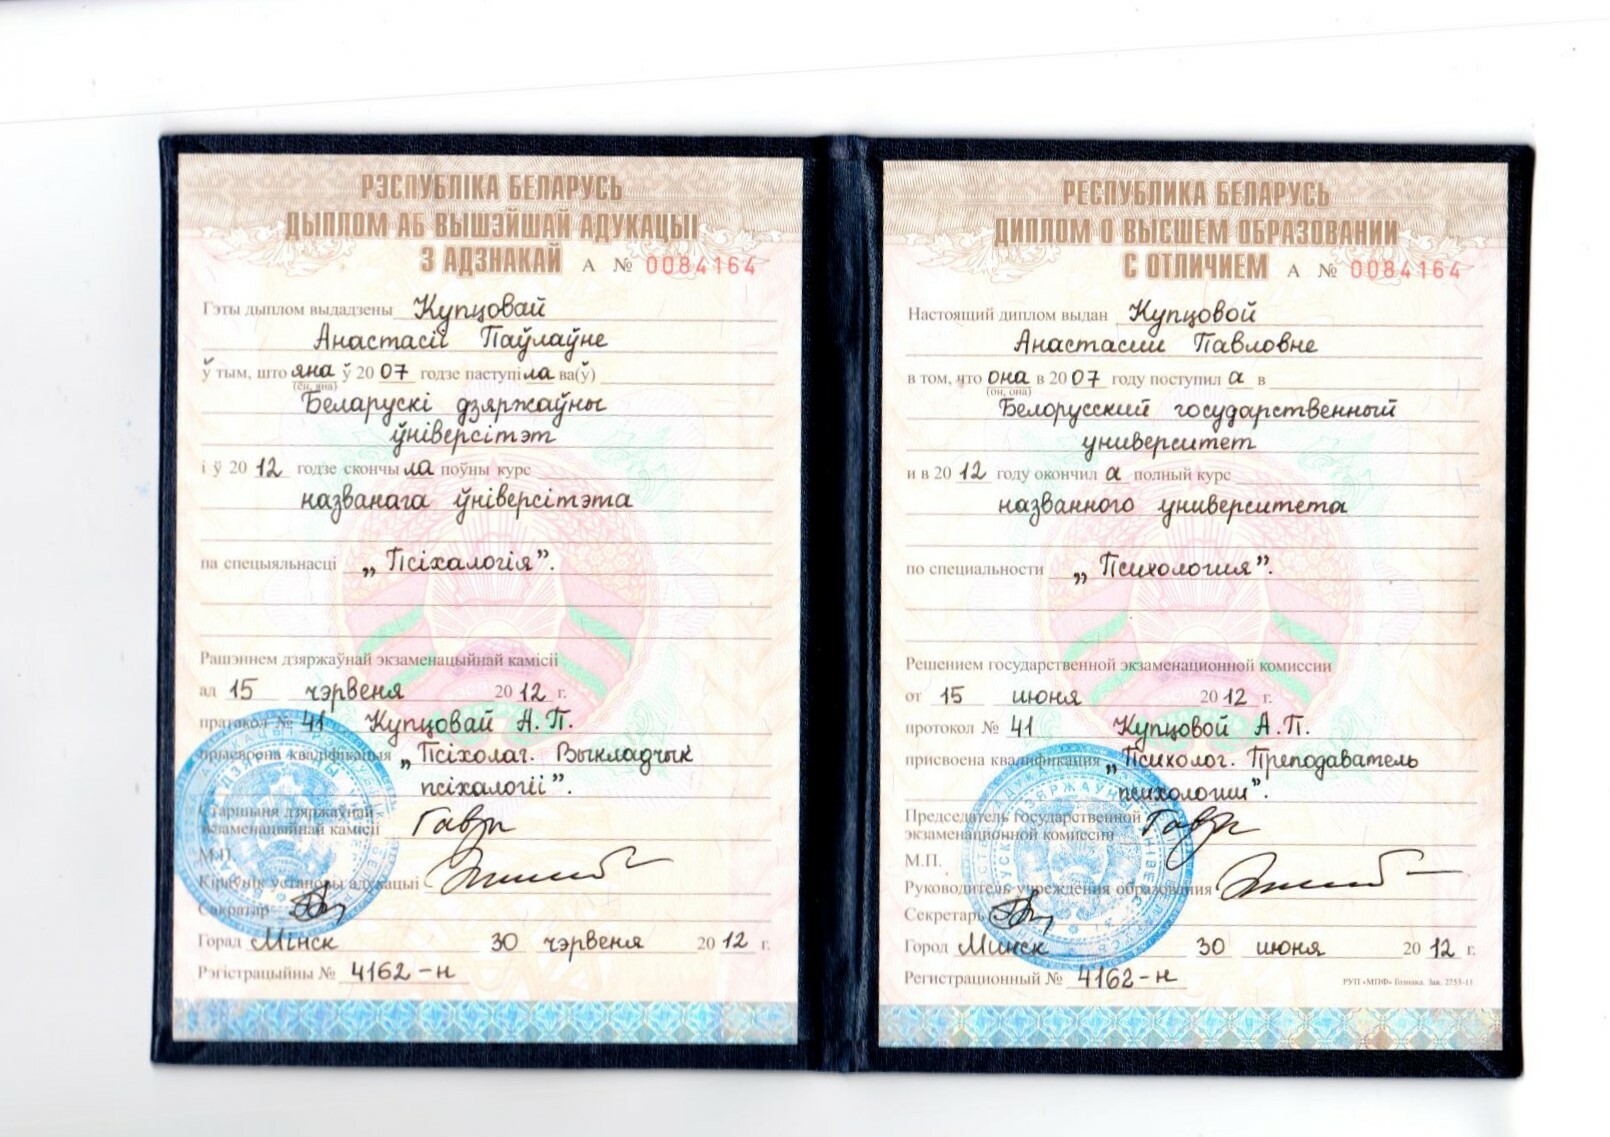 РЭСПУБЛІКА БЕЛАРУСЬ
ДЫПЛОМ АБ ВЫШЭЙШАЙ АДУКАЦЫІ
З АДЗНАКАЙ А № 0084164
Гэты дыплом выдадзены Купцовай
Анастасіі Паўлаўне
ў тым, што яна ў 2007 годзе паступіла ва(ў)
(ён, яна)
Беларускі дзяржаўны
ўніверсітэт
і ў 2012 годзе скончыла поўны курс
названага ўніверсітэта
па спецыяльнасці „Псіхалогія”.
Рашэннем дзяржаўнай экзаменацыйнай камісіі
ад 15 чэрвеня 2012 г.
пратакол № 41 Купцовай А.П.
прысвоена кваліфікацыя „Псіхолаг. Выкладчык
псіхалогіі”.
Старшыня дзяржаўнай
экзаменацыйнай камісіі
М.П.
Кіраўнік установы адукацыі
Сакратар
Горад Мінск 30 чэрвеня 2012 г.
Рэгістрацыйны № 4162-н
РЕСПУБЛИКА БЕЛАРУСЬ
ДИПЛОМ О ВЫСШЕМ ОБРАЗОВАНИИ
С ОТЛИЧИЕМ А № 0084164
Настоящий диплом выдан Купцовой
Анастасии Павловне
в том, что она в 2007 году поступила в
(он, она)
Белорусский государственный
университет
и в 2012 году окончила полный курс
названного университета
по специальности „Психология”.
Решением государственной экзаменационной комиссии
от 15 июня 2012 г.
протокол № 41 Купцовой А.П.
присвоена квалификация „Психолог. Преподаватель
психологии”.
Председатель государственной
экзаменационной комиссии
М.П.
Руководитель учреждения образования
Секретарь
Город Минск 30 июня 2012 г.
Регистрационный № 4162-н
РУП «МПФ» Гознака. Зак. 2753-11